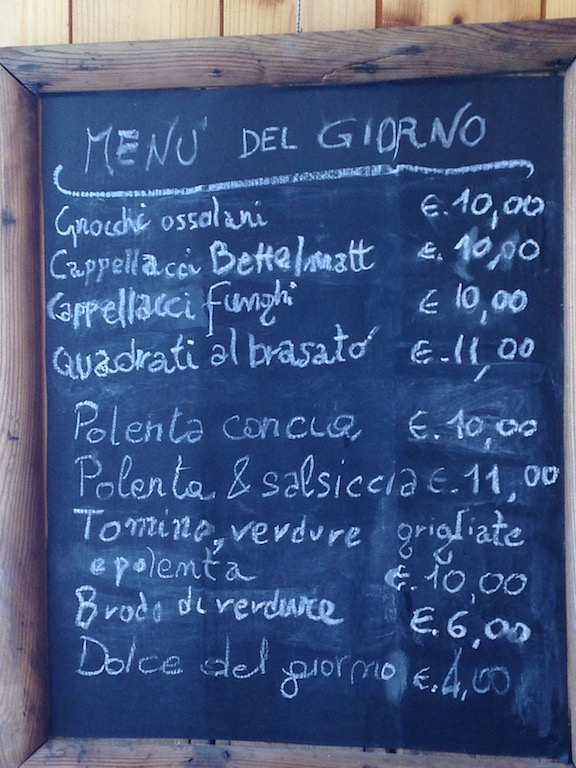 MENU' DEL GIORNO
Gnocchi ossolani €.10,00
Cappellacci Bettelmatt €.10,00
Cappellacci funghi € 10,00
Quadrati al brasato €.11,00
Polenta concia €.10,00
Polenta & salsiccia €.11,00
Tomino, verdure grigliate
e polenta €.10,00
Brodo di verdure €.6,00
Dolce del giorno €.4,00